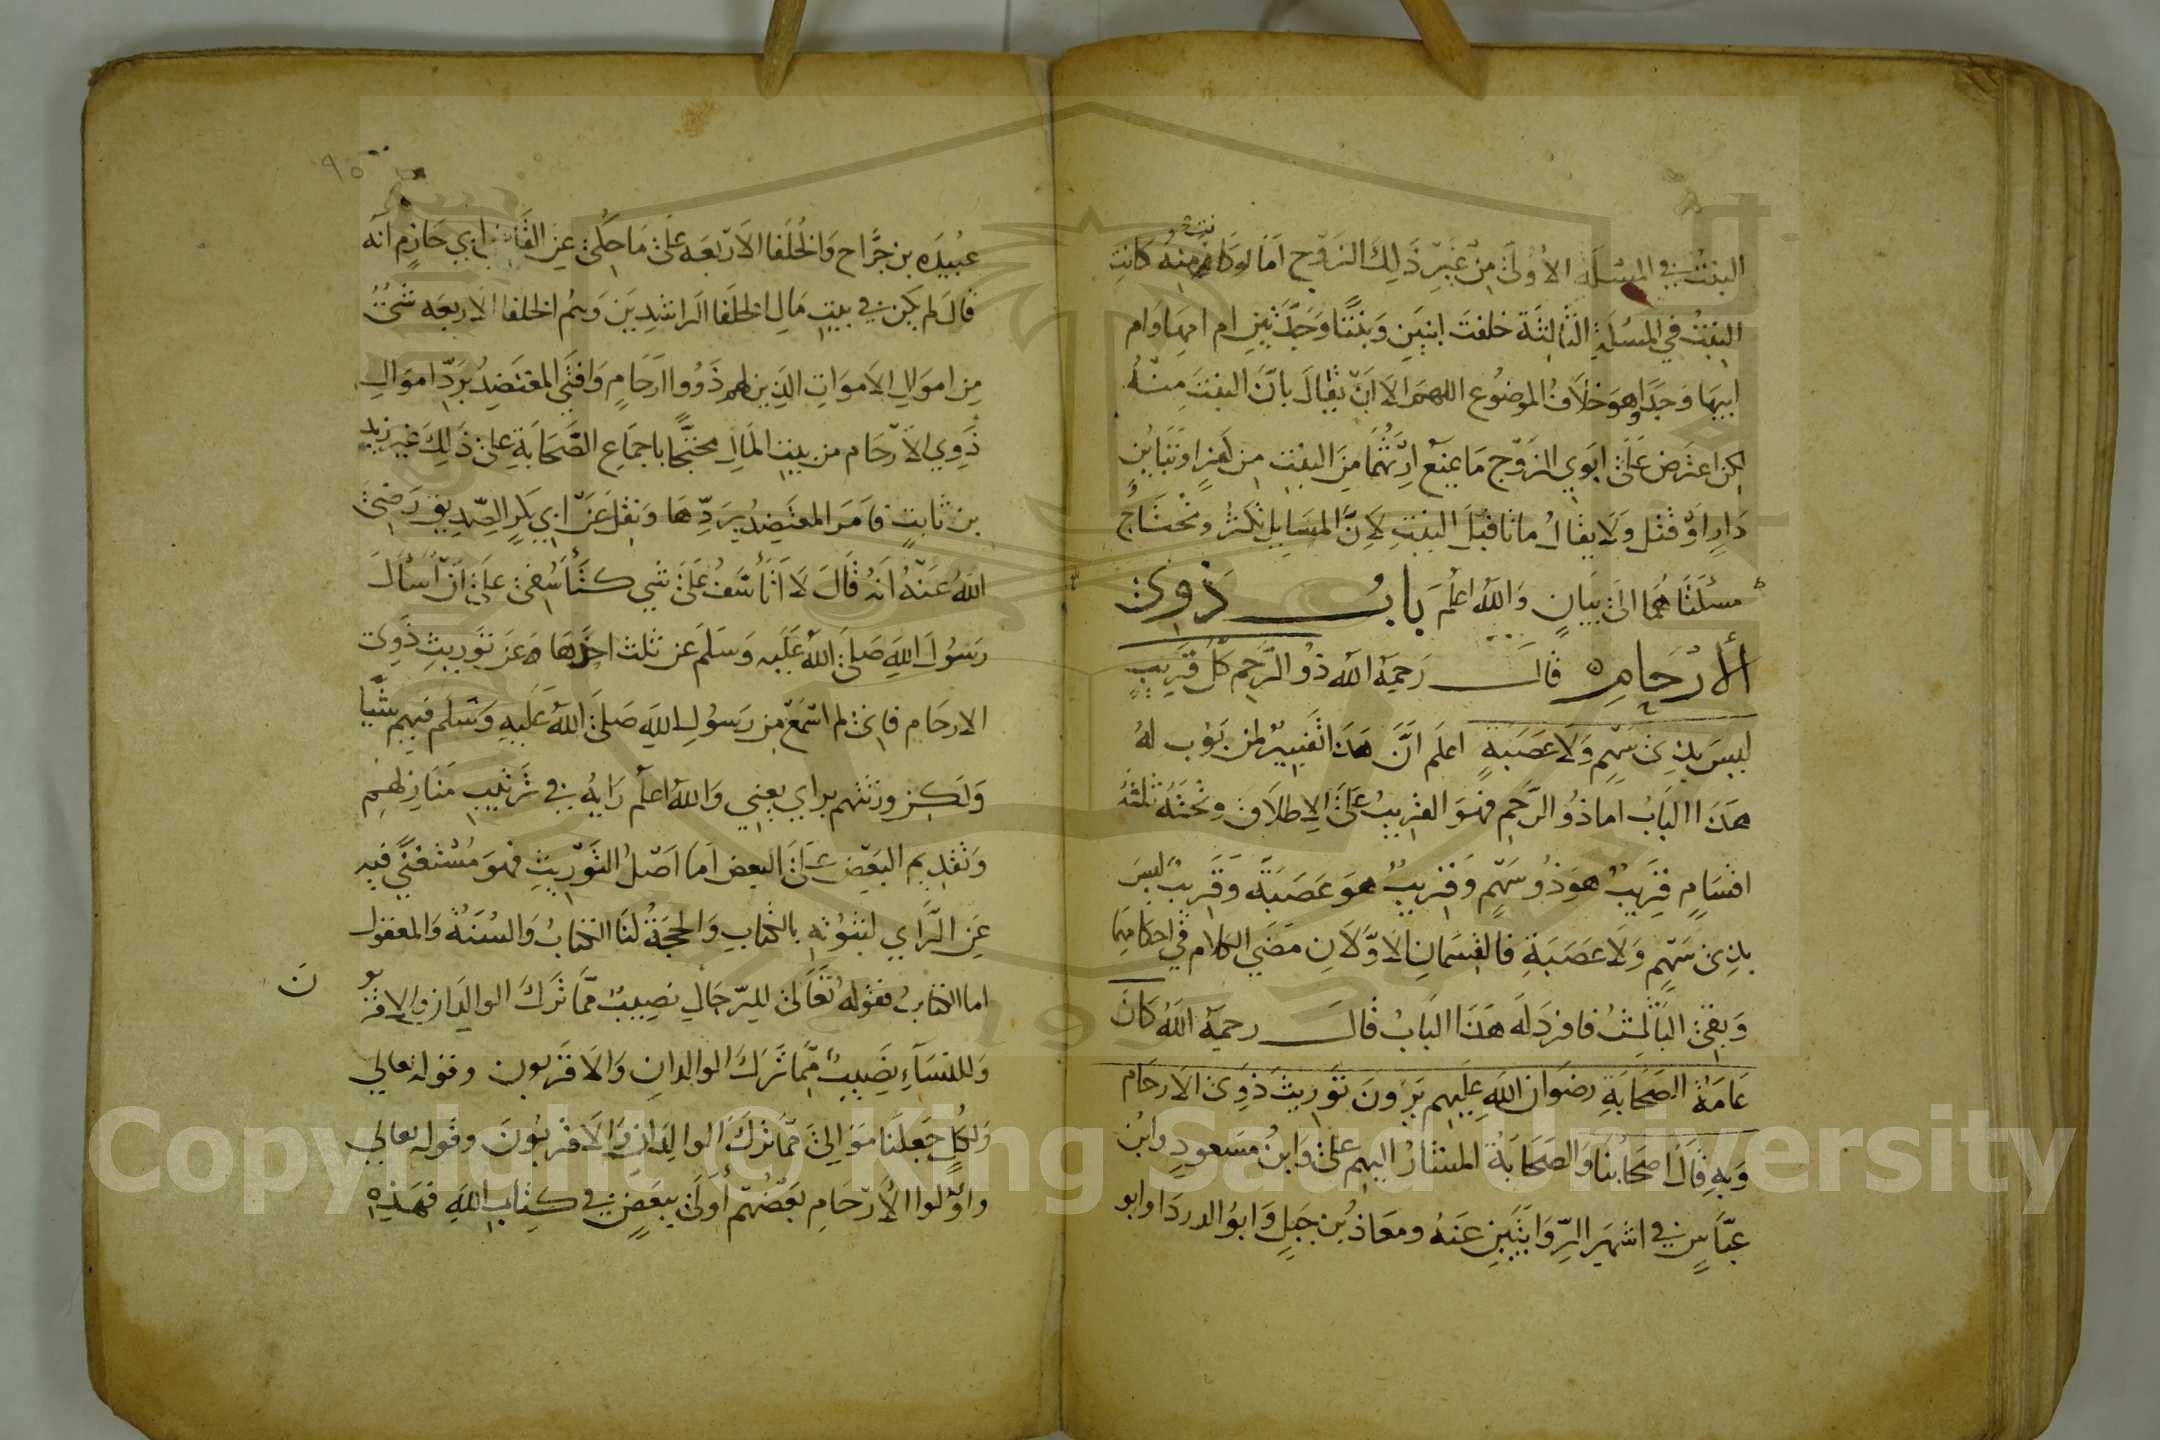 البنت في المسئلة الاولى من غير ذلك الزوج اما لو كانت منه كانت
البنت في المسئلة الثالثة خلفت ابنين وبنتا وجدتين ام امها وام
ابيها وجدا وهو خلاف الموضوع اللهم الا ان يقال بان البنت منه
لكن اعترض على ابوي الزوج ما يمنع ارثهما من البنت من كفر او تباين
دار او قتل ولا يقال ماتا قبل البنت لان المسايل تكثر وتحتاج
مسئلتاهما الى بيان والله اعلم باب ذوى
الأرحام قال رحمه الله ذو الرحم كل قريب
ليس بذى سهم ولا عصبة اعلم ان هذا تفسير لمن بوب له
هذا الباب اما ذو الرحم فهو القريب على الاطلاق وتحته ثلثة
اقسام قريب هو ذو سهم وقريب هو عصبة وقريب ليس
بذى سهم ولا عصبة فالقسمان الاولان مضى الكلام في احكامهما
وبقى الثالث فافرد له هذا الباب قال رحمه الله كان
عامة الصحابة رضوان الله عليهم يرون توريث ذوى الارحام
وبه قال اصحابنا والصحابة المشار اليهم على وابن مسعود وابن
عباس في اشهر الروايتين عنه ومعاذ بن جبل وابو الدردا وابو
٩٥
عبيده بن جراح والخلفا الاربعه على ما حكى عن القاضي ابي حازم انه
قال لم يكن في بيت مال الخلفا الراشدين وهم الخلفا الاربعه شئ
من اموال الاموات الذين لهم ذووا ارحام وافتى المعتضد برد اموال
ذوي الارحام من بيت المال محتجا باجماع الصحابة على ذلك غير زيد
بن ثابت فامر المعتضد بردها ونقل عن ابي بكر الصديق رضى
الله عنه انه قال لا اتأسف على شي كتأسفى على ان اسأل
رسول الله صلى الله عليه وسلم عن ثلث احدها عن توريث ذوى
الارحام فانى لم اسمع من رسول الله صلى الله عليه وسلم فيهم شيا
ولكن ورثتهم براي يعني والله اعلم رايه في ترتيب منازلهم
وتقديم البعض على البعض اما اصل التوريث فهو مستغنى فيه
عن الراي لثبوته بالكتاب والحجة لنا الكتاب والسنة والمعقول
اما الكتاب فقوله تعالى للرجال نصيب مما ترك الوالدان والاقربون
وللنساء نصيب مما ترك الوالدان والاقربون وقوله تعالي
ولكل جعلنا موالى مما ترك الوالدان والاقربون وقوله تعالي
واولوا الأرحام بعضهم أولى ببعض في كتاب الله فهذه
Copyright © King Saud University